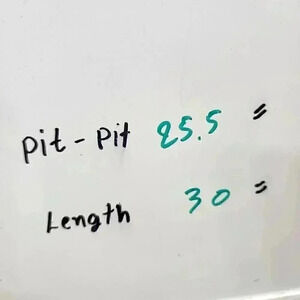 pit - pit 25.5 "
Length 30 "